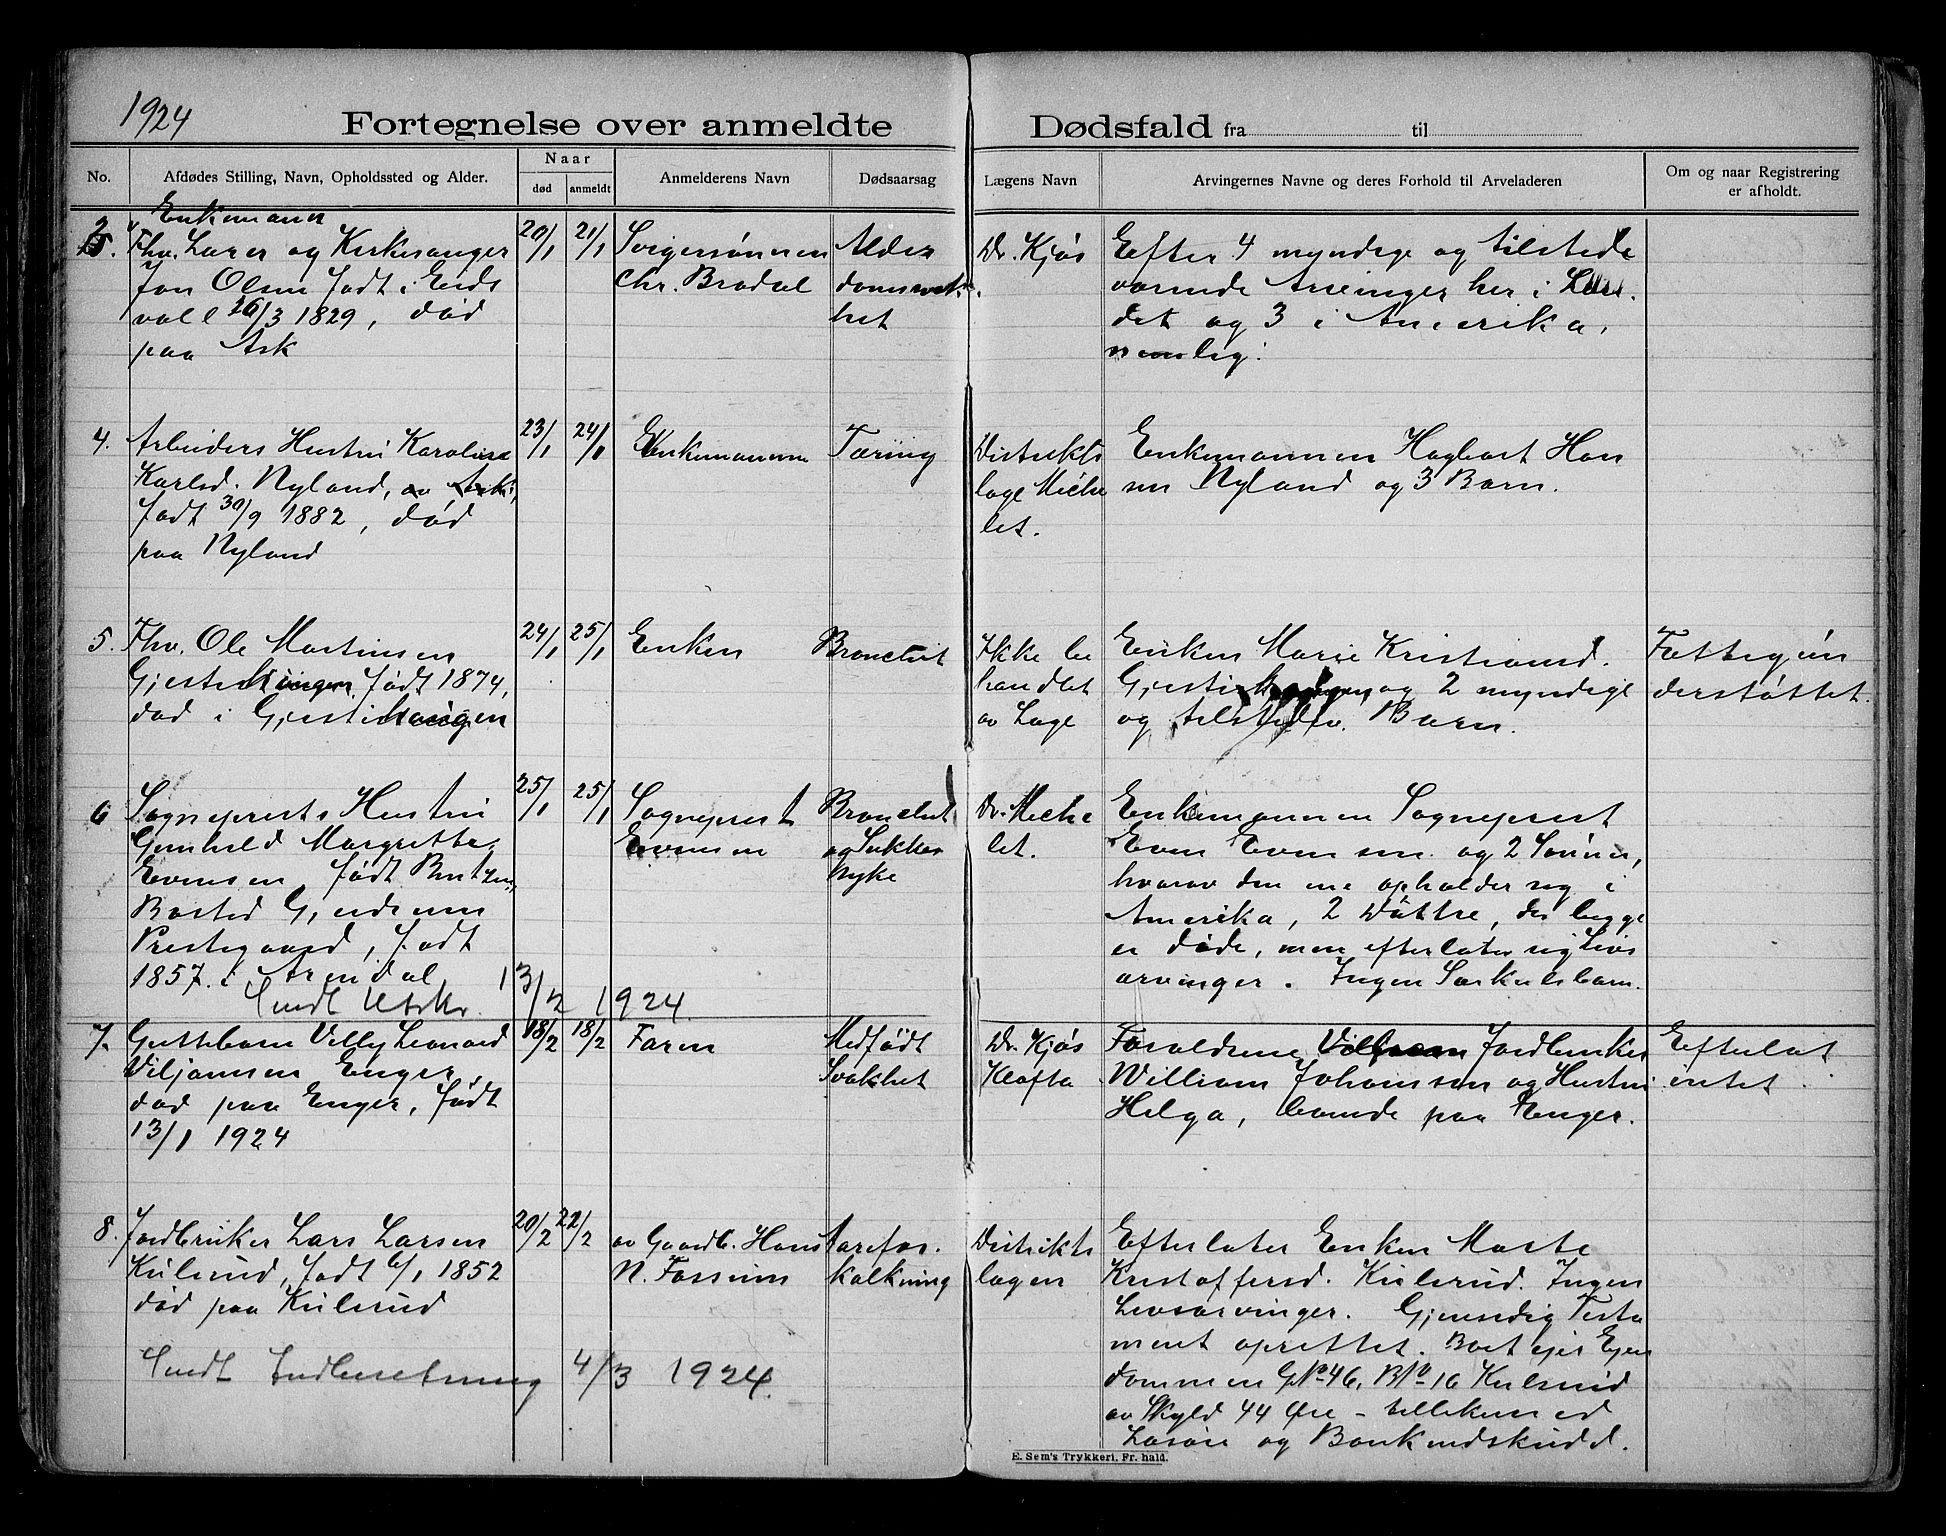 1924
Fortegnelse over anmeldte Dødsfald fra til
No.
Afdødes Stilling, Navn, Opholdssted og Alder.
Naar
død
anmeldt
Anmelderens Navn
Dødsaarsag
Lægens Navn
Arvingernes Navne og deres Forhold til Arveladeren
Om og naar Registrering
er afholdt.
3.
Enkemann
Fhv. Lærer og Kirkesanger
Jon Olsen født i Eids
voll 26/3 1829, død
paa Ask
20/1
21/1
Svigersønnen
Chr. Brodal
Alder
domsvak
het
Dr. Kjøs
Efter 4 myndige og tilstede
værende Arvinger her i Lan
det og 3 i Amerika,
nemlig:
4.
Arbeiders Hustru Karoline
Karlsd. Nyland, av Ask,
født 30/9 1882, død
paa Nyland
23/1
24/1
Enkemannen
Tæring
Distrikts
læge Miche
let.
Enkemannen Hagbart Han
sen Nyland og 3 Barn.
5.
Fhv. Ole Martinsen
Gjestihaugen født 1874,
død i Gjestihaugen
24/1
25/1
Enken
Bronchit
Ikke be
handlet
av Læge
Enken Marie Kristiansd.
Gjestihaugen og 2 myndige
og tilstedev. Barn.
Fattigun
derstøttet.
6
Sogneprests Hustru
Gunhild Margrethe
Evensen født Bentzen,
Bosted Gjerdrum
Prestegaard, født
1857 i Arendal
25/1
25/1
Sogneprest
Evensen
Bronchit
og Sukker
syke
Dr. Miche
let.
Enkemannen Sogneprest
Even Evensen og 2 Sønner,
hvorav den ene opholder sig i
Amerika, 2 Døttre, der begge
er døde, men efterlater sig Livs
arvinger. Ingen Særkulsbarn.
Sendt 13/2 1924.
7.
Guttebarn Villy Leonard
Viljamsen Enger,
død paa Enger, født
13/1 1924
18/2
18/2
Faren
Medfødt
Svakhet
Dr. Kjøs
Kløfta
Forældrene Jordbruker
William Johansen og Hustru
Helga, boende paa Enger.
Efterlot
intet.
8.
Jordbruker Lars Larsen
Kulsrud, født 6/1 1852
død paa Kulsrud
20/2
22/2
av Gaardb. Hans
N. Fossum
Aarefor.
kalkning
Distrikts
lægen
Efterlater Enken Marte
Kristoffersd. Kulsrud. Ingen
Livsarvinger. Gjensidig Testa
ment oprettet. Boet eier Eien
dommen GNo 46, BNo 16 Kulsrud
av Skyld 44 Øre – tillikemed
Løsøre og Bankindskudd.
Sendt Indberetning 4/3 1924.
E. Sem's Trykkeri, Fr.hald.